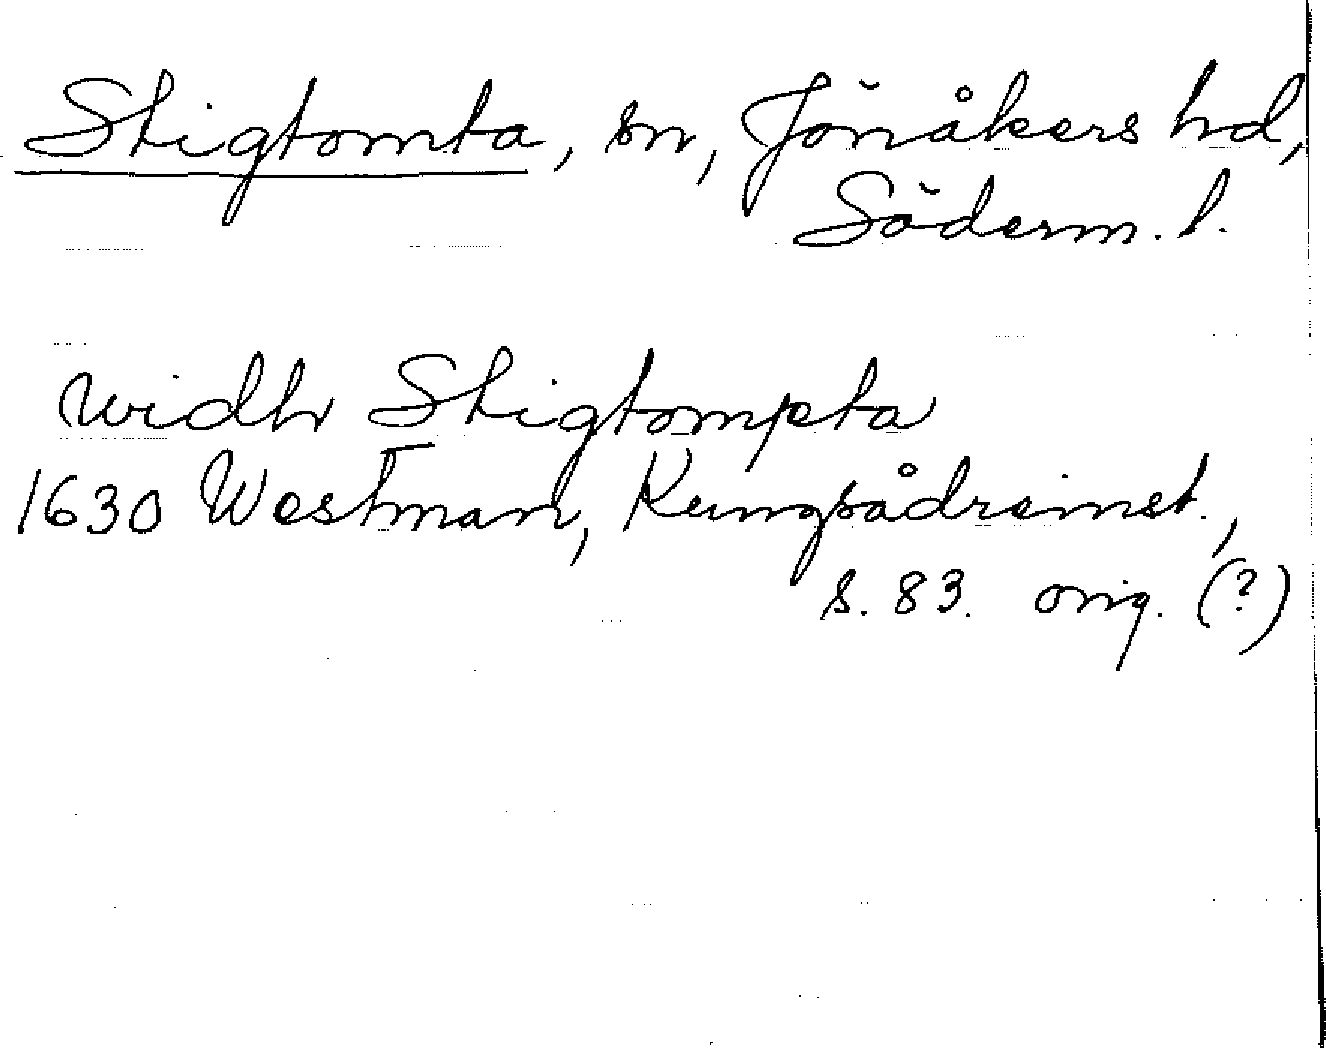 Stigtomta, sn, Jönåkers hd,
Söderm. l.
widh Stigtompta
1630 Westman, Kungsådreinst.,
s. 83. orig. (?)